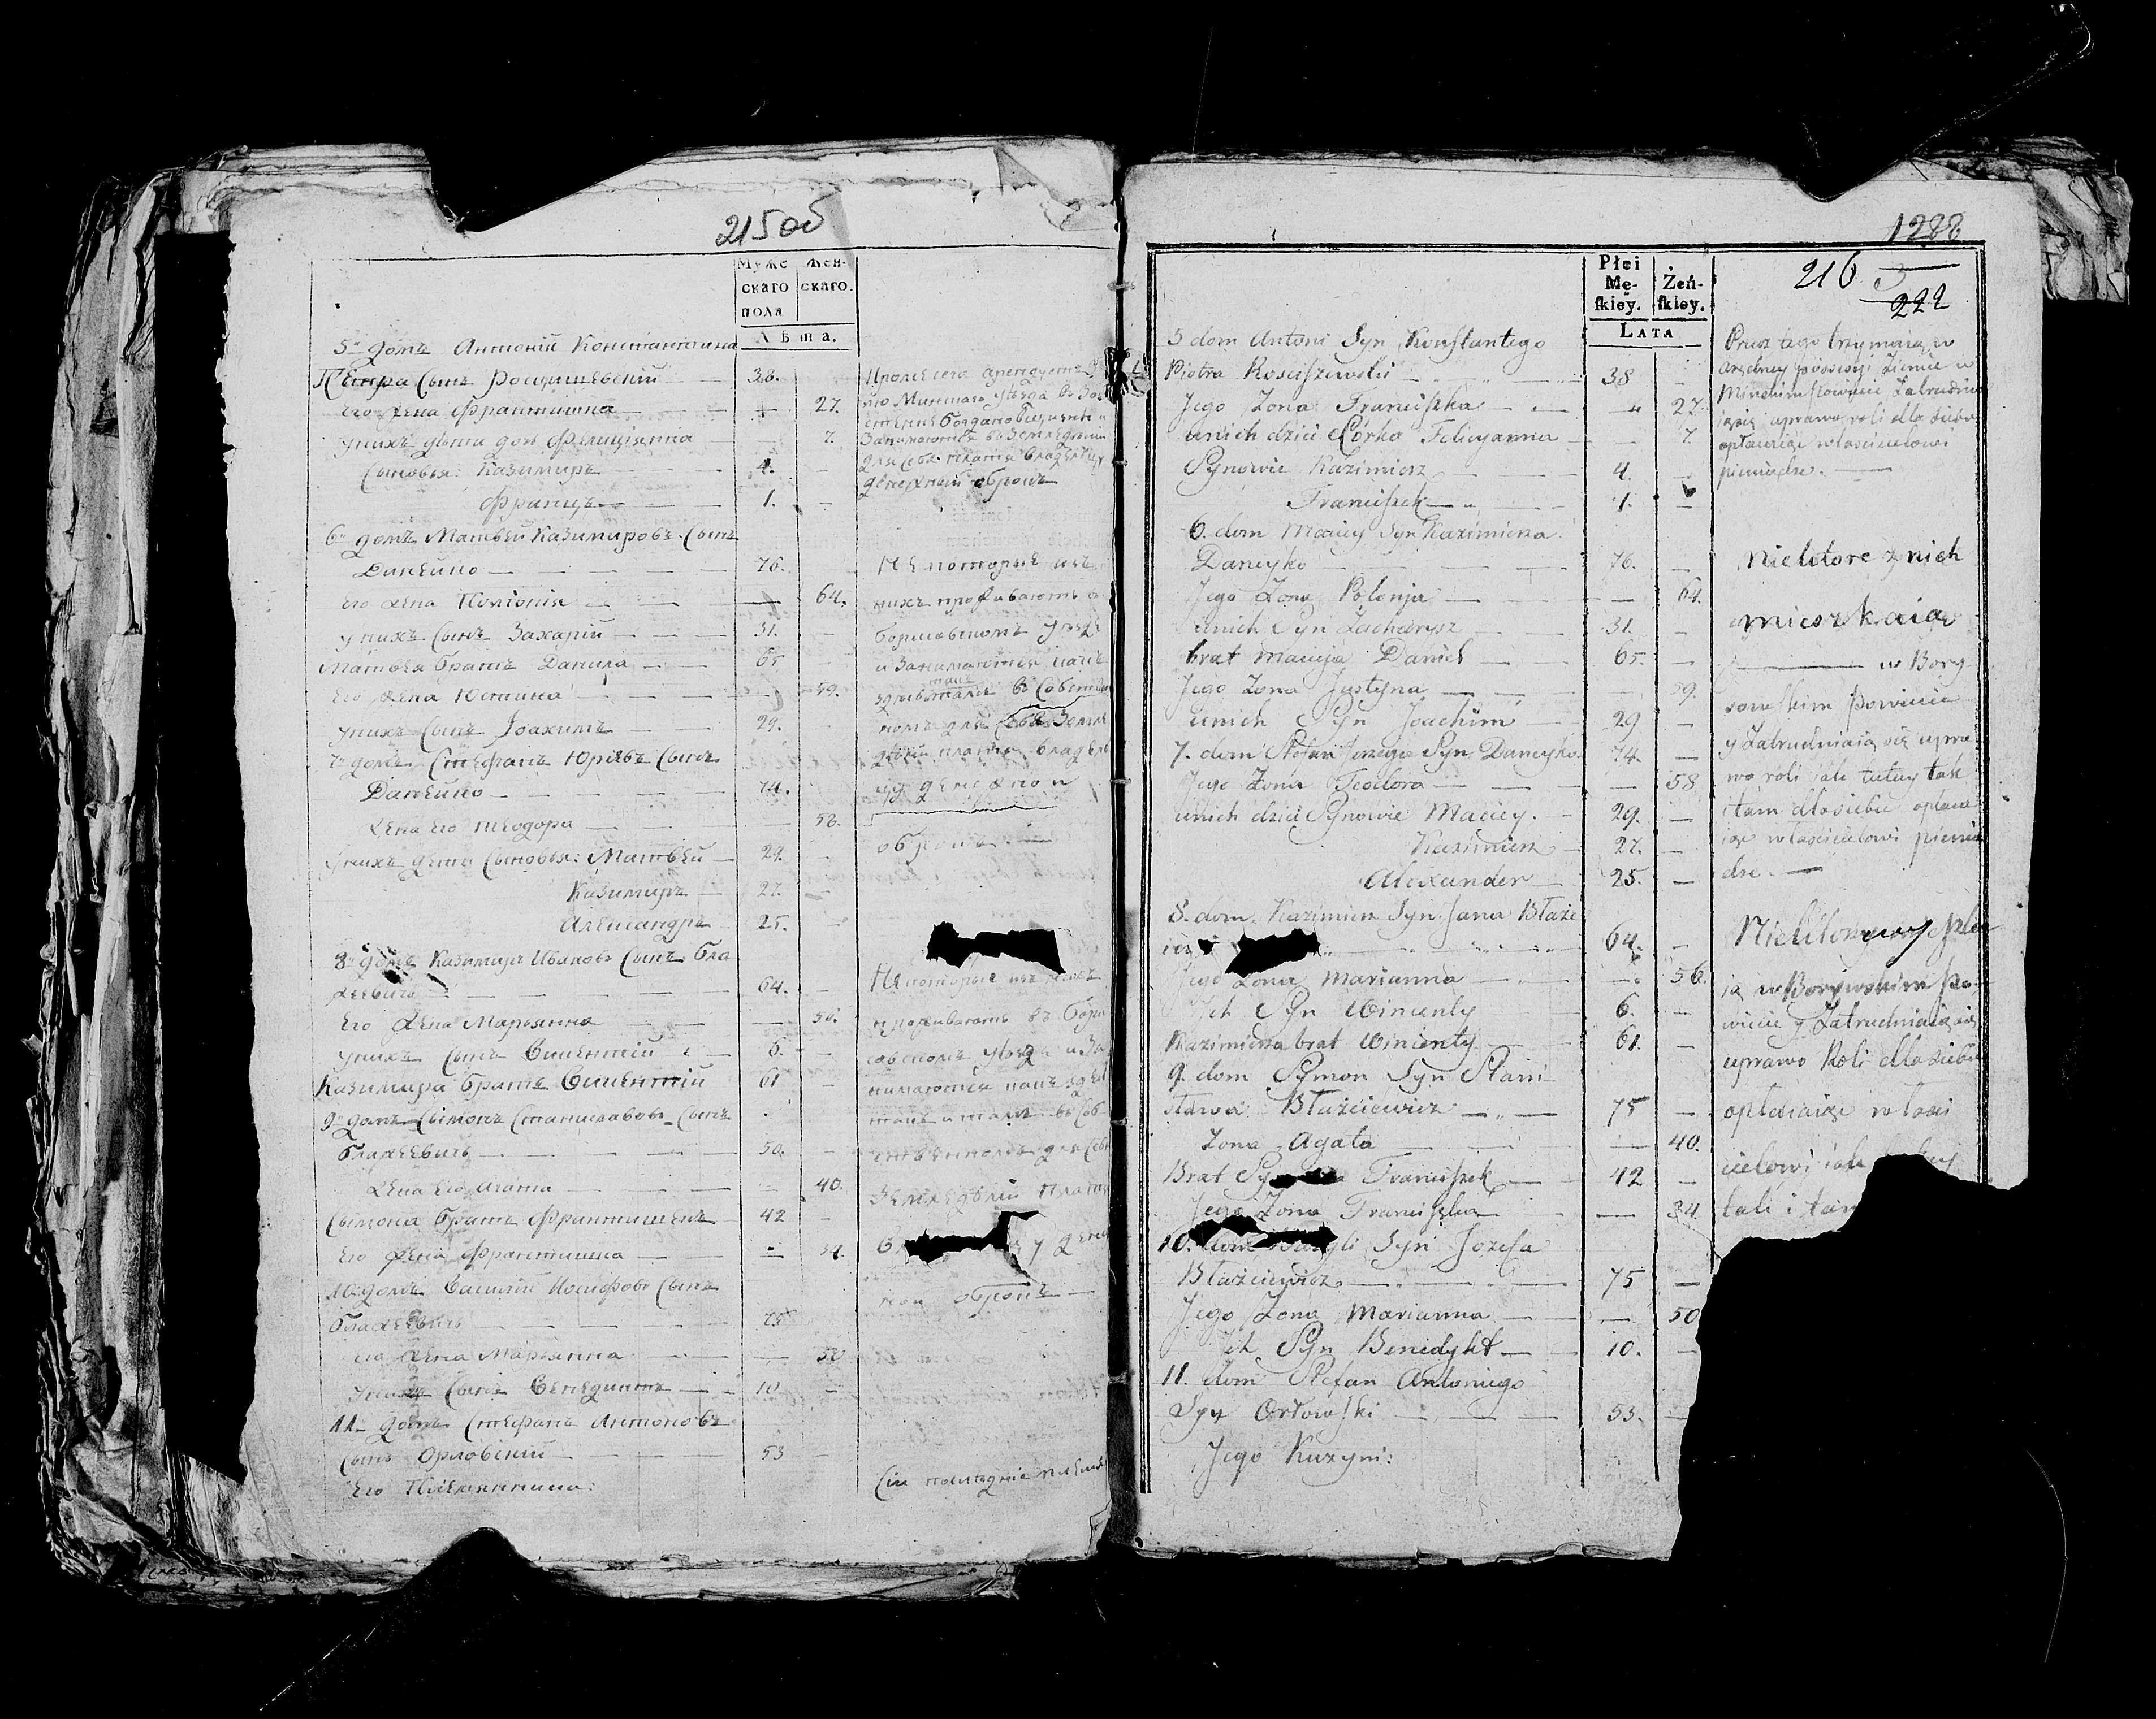 215 об
Муже
скаго
пола
Жен-
скаго.
Лѣта.
5й домъ Антоній Константина
Петра Сынъ Росцишевскій 38.
его жена Францишка 27.
у нихъ дѣти дочь Фелиціянна 7.
Сыновья: Казимиръ 4.
Францъ 1.
6й домъ Матвѣй Казимировъ Сынъ
Данейко 76.
его жена Полонія 64.
у нихъ Сынъ Захарій 31.
Матвѣя братъ Данила 65
его жена Юстина 59.
у нихъ Сынъ Іоахимъ 29.
7й домъ Стефанъ Юріевъ Сынъ
Данейко 74.
жена его Теодора 58.
у нихъ дети Сыновья: Матвѣй 29.
Казимиръ 27.
Александръ 25.
8й домъ Казимиръ Ивановъ Сынъ Бла
жеевичъ 64.
его жена Марьянна 56.
у нихъ Сынъ Викентій 6.
Казимира братъ Викентій 61
9й домъ Сымонъ Станиславовъ Сынъ
Блажеевичъ 50.
жена его Агата 40.
Сымона братъ Францишекъ 42
его жена Францишка 34.
10й домъ Василій Іосифовъ Сынъ
Блажеевичъ 75
его жена Марьянна 50
у нихъ Сынъ Бенедиктъ 10
11й домъ Стефанъ Антоновъ
Сынъ Орловскій 53
Его Племянники:
Кромѣ сего арендуетъ
Минскаго уѣзда
занимаются въ земледѣліи
для себя платя владѣльцу
денежный оброкъ
Нѣкоторые изъ
нихъ проживаютъ в
борисовскомъ уѣзде
и занимаются какъ
здѣсь такъ
для себя земле
дѣліи платя владѣль
цу денежной
оброкъ.
Нѣкоторые изъ нихъ
проживаютъ въ Бори
совскомъ уѣзде и за
нимаются какъ здѣсь
такъ и тамъ
для себя
земледѣліи платя
ной оброкъ
Сіи
1288
216
222
Płci
Mę-
ſkiey.
Żeń-
ſkiey.
LATA
5 dom Antoni Syn Konſtantego
Piotra Rosciszewski 38
Jego Żona Franciſzka 27.
unich dzieci Córka Felicyanna 7.
Synowie Kazimierz 4.
Franciſzek 1.
6. dom Maciey Syn Kazimierza
Daneyko 76.
Jego Żona Polonja 64.
unich Syn Zacharysz 31.
brat Macieja Daniel 65.
Jego Żona Justyna 59.
unich Syn Joachim 29
7. dom Stefan Jerzego Syn Daneyko 74.
Jego Żona Teodora 58
unich dzieci Synowie Maciey. 29.
Kazimierz 27.
Alexander 25.
8. dom. Kazimierz Syn Jana Błaże
64.
Jego Żona Marianna 56.
Ich Syn Wincenty 6.
Kazimierza brat Wincenty 61.
9. dom Symon Syn Stani
sława Błażeiewicz 75
Żona Agata 40.
Brat Franciſzek 42
Jego Żona Franciſzka 34.
10. dom Syn Jozefa
Błażeiewicz 75
Jego Żona Marianna 50
Ich Syn Benedykt 10.
11. dom Stefan Antoniego
Syn Orłowſki 53.
Jego Kuzyni:
Procz tego trzymaią w
Ziemie w
Minskim Powiecie Zatrudnia
iąsię uprawą roli dla siebie
opłacaiąc właścicielowi
pieniądze.
Niektore z nich
mieszkaią
w Bory
sowſkim Powiecie
y Zatrudniaią się upra
wo roli iak tutey tak
i tam dla siebie opłaca
iąc właścicielowi pienią
dze.
Niektorzy
ią w Borysowſkim Po
wiecie y Zatrudniaią się
uprawo Roli dla siebie
opłacaiąc właści
cielowi iak
tak i tam